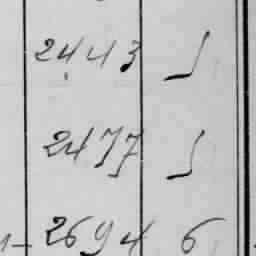 2443
2477
2694 6